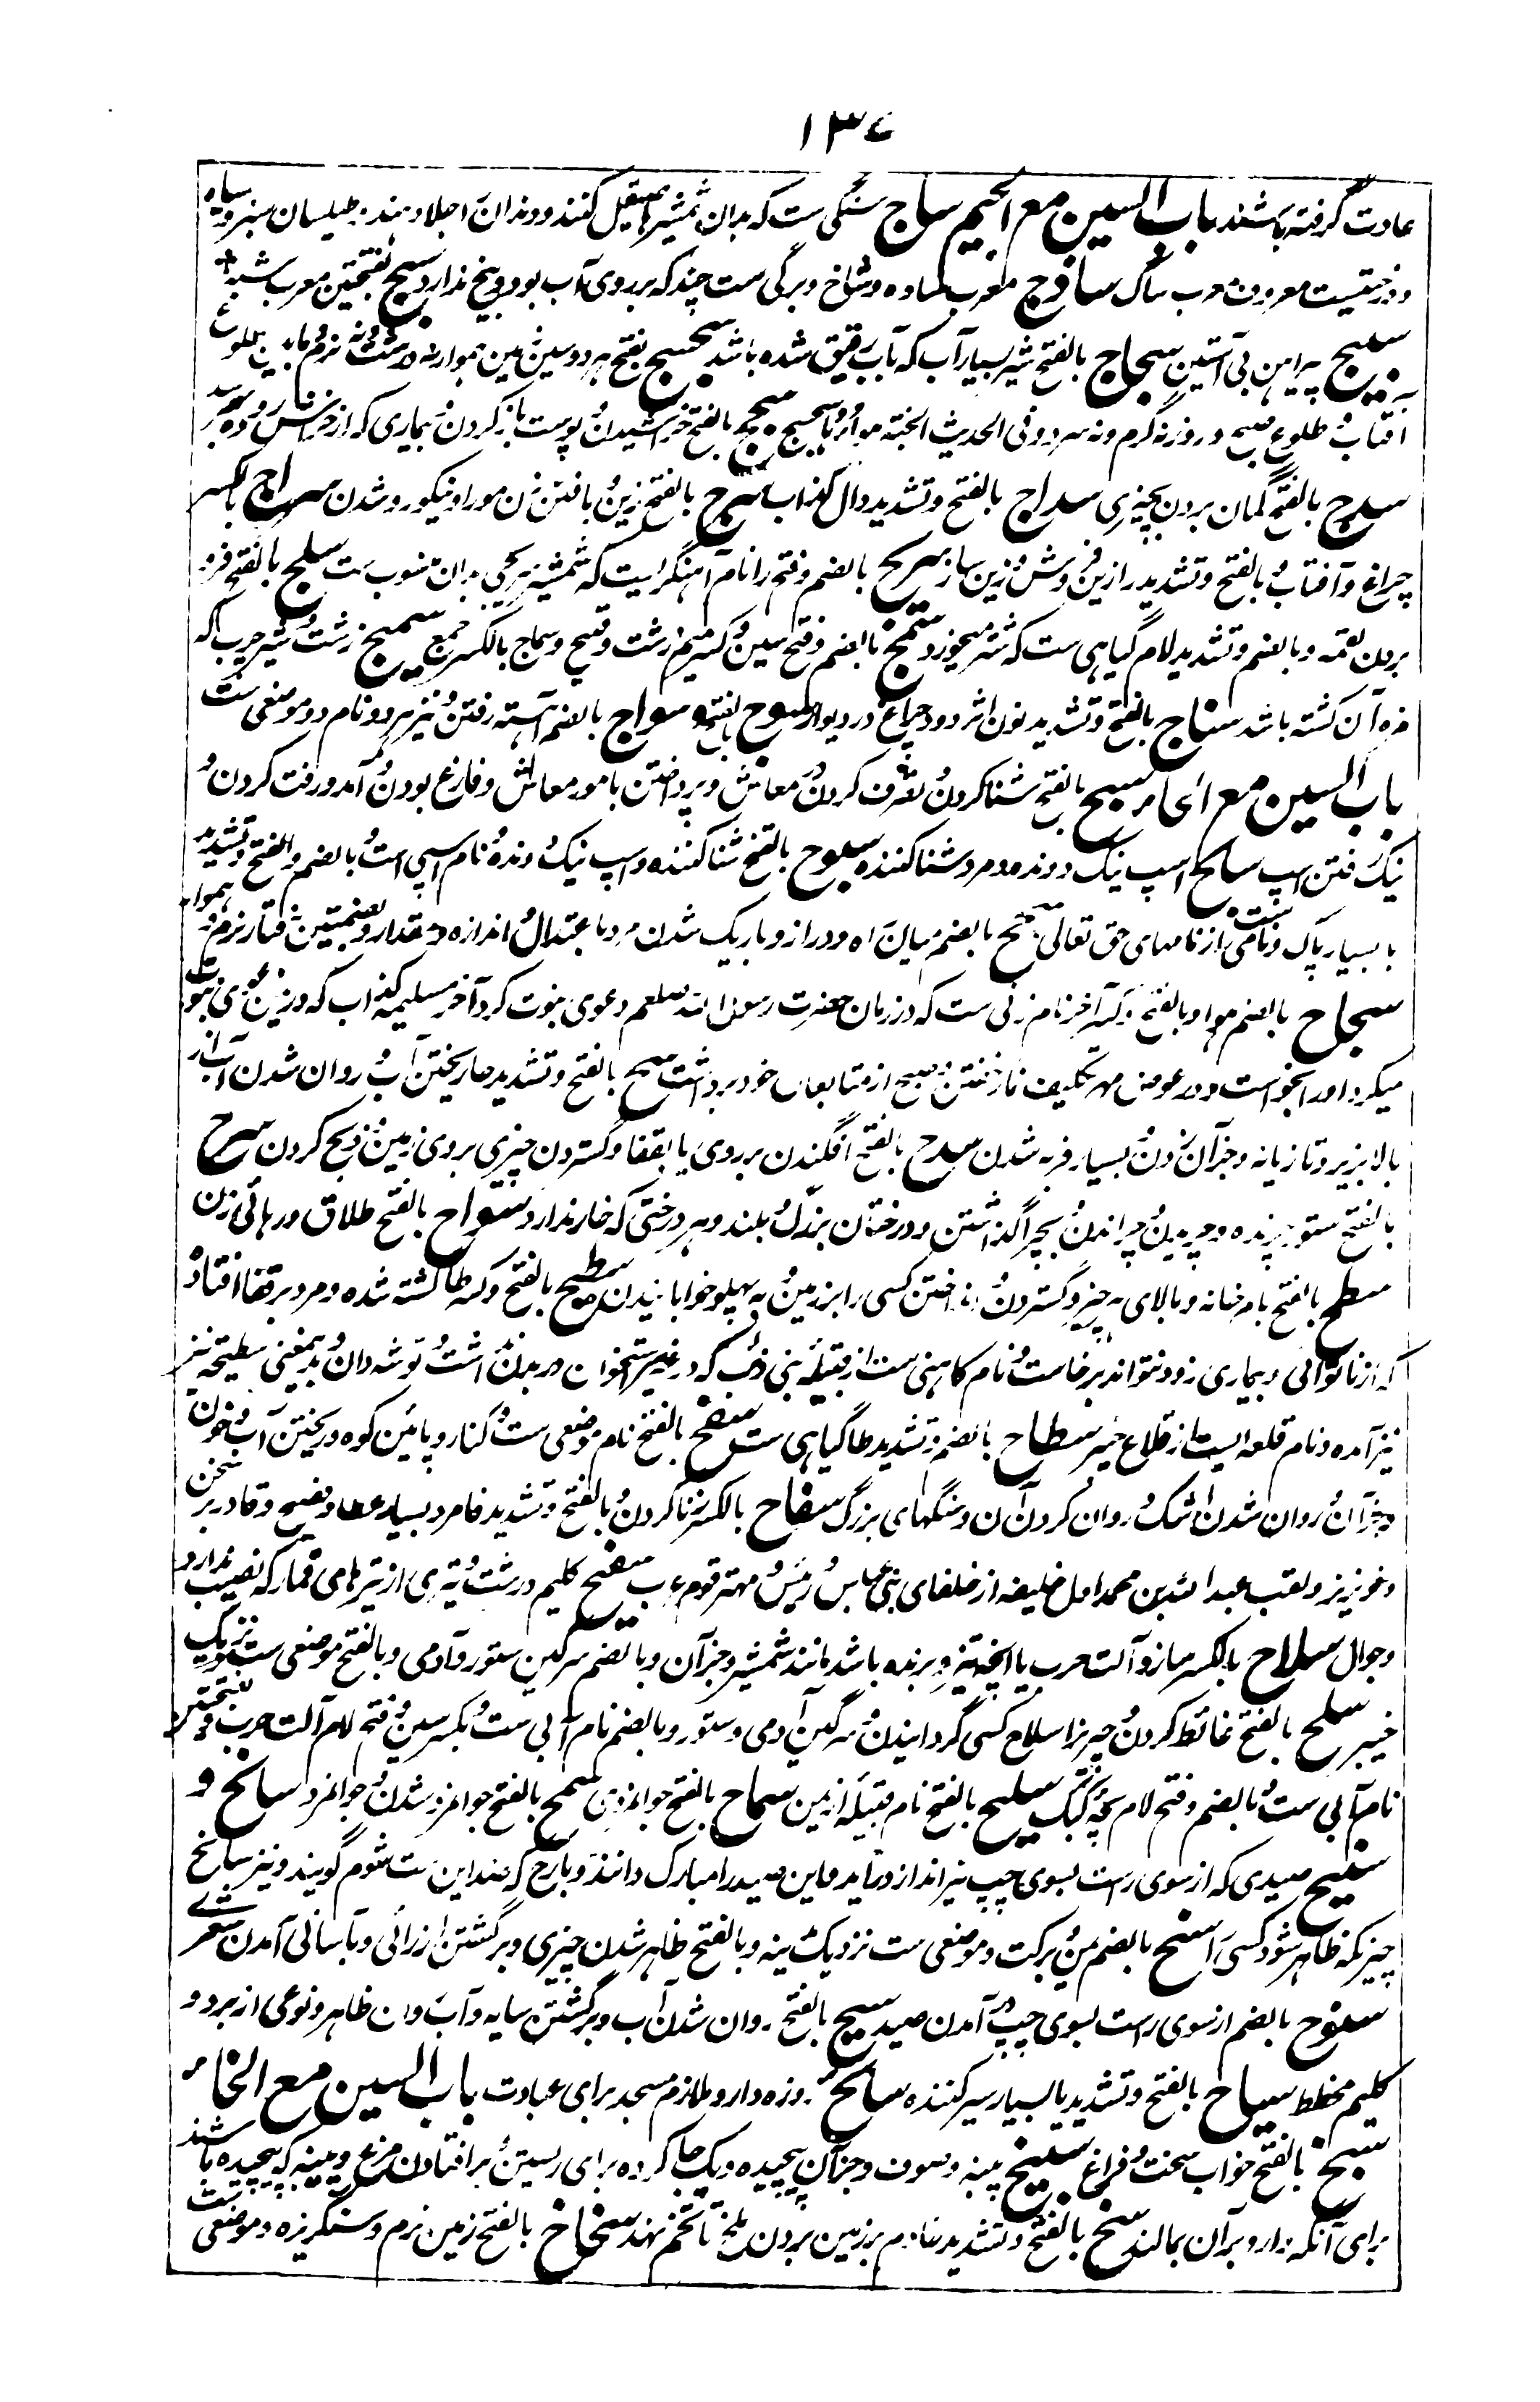 ١٣٤
عادت گرفته باشند باب السین مع الجیم ساج سنگی ست که بدان شمشیرها صیقل کنند و دندان را جلا دهند و طیلسان سبز و سیاه
و درختیست معروف معرب ساگ ساذج معرب ساده و شاخ و برگی ست چند که بر روی آب بود و بیخ ندارد سبج بفتحتین معرب شبه
سبیج پیراهن بی آستین سجاج بالفتح شیر بسیار آب که بآب رقیق شده باشد سجسج بفتح هر دو سین زمین هموار نه درشت و نه نرم و مابین طلوع
آفتاب و طلوع صبح و روز نه گرم و نه سرد و فی الحدیث الجنة هواؤها سجسج سحج بالفتح خراشیدن و پوست باز کردن و بیماری که از خراش روده بهم رسد
سدج بالفتح گمان بردن بچیزی سداج بالفتح و تشدید دال کذاب سرج بالفتح زین و بافتن زن مو را و نیکو رو شدن سراج بالکسر
چراغ و آفتاب و بالفتح و تشدید را زین فروش و زین ساز سریج بالضم و فتح را نام آهنگریست که شمشیر سریجی بدان منسوب ست سلج بالفتح فرو
بردن لقمه و بالضم و تشدید لام گیاهی ست که شتر میخورد سمج بالضم و فتح سین و کسر میم زشت و قبیح و سماج بالکسر جمع سمیج زشت و شیر چرب که
مزه آن گشته باشد سناج بالفتح و تشدید نون اثر دود چراغ در دیوار سوج بالفتح و سواج بالضم آهسته رفتن و نیز هر دو نام دو موضعی ست
باب السین مع الحاء سبح بالفتح شنا کردن و تصرف کردن در معاش و پرداختن بامور معاش و فارغ بودن و آمد و رفت کردن و
نیک رفتن اسپ سابح اسپ نیک دونده و مرد شنا کننده سبوح بالفتح شنا کننده و اسپ نیک دونده و نام اسپی است و بالضم و الفتح و تشدید
با بسیار پاک و نامی ست از نامهای حق تعالی سجح بالضم میان راه و دراز و باریک شدن رو با عتدال و اندازه و مقدار و بضمتین رفتار نرم و هموار
سجاح بالضم هوا و بالفتح و کسر آخر نام زنی ست که در زمان حضرت رسول الله صلعم دعوی نبوت کرد آخر مسیلمه کذاب که درین دعوی نبوت
میکرد او را بخواست و در عوض مهر تکلیف نماز خفتن و صبح از متابعان خود برداشت سح بالفتح و تشدید حا ریختن آب و روان شدن آب از
بالا بزیر و تازیانه و جز آن زدن و بسیار فربه شدن سدح بالفتح افگندن بر روی یا بقفا و گستردن چیزی بر روی زمین و ذبح کردن سرح
بالفتح ستور چرنده و چریدن و چراندن و بچرا گذاشتن و درختان بزرگ و بلند و هر درختی که خار ندارد سواح بالفتح طلاق و رهائی زن
سطح بالفتح بام خانه و بالای هر چیز و گستردن و انداختن کسی را بر زمین و به پهلو خوابانیدن سطیح بالفتح و کسر طا کشته شده و مرد بر قفا افتاده
که از ناتوانی و بیماری زود نتواند برخاست و نام کاهنی ست از قبیله بنی ذئب که در غیر سر استخوان در بدن نداشت و توشه دان و بدینمعنی سطیحه نیز
نیز آمده و نام قلعه ایست از قلاع خیبر سطاح بالضم و تشدید طا گیاهی ست سفح بالفتح نام موضعی ست و کنار و پائین کوه و ریختن آب و خون
و جز آن و روان شدن اشک و روان کردن آن و سنگهای بزرگ سفاح بالکسر زنا کردن و بالفتح و تشدید فا مرد بسیار عطا و فصیح و قادر بر سخن
و خونریز و لقب عبدالله بن محمد اول خلیفه از خلفای بنی عباس و رئیس و مهتر قوم عرب سفیح گلیم درشت و تیری از تیرهای قمار که نصیب ندارد
و جوال سلاح بالکسر ساز و آلت حرب یا آنچه تیز و برنده باشد مانند شمشیر و جز آن و بالضم سرگین ستور و آدمی و بالفتح موضعی ست نزدیک
خیبر سلح بالفتح غائط کردن و چیز را سلاح کسی گردانیدن و سرگین آدمی و ستور و بالضم نام آبی ست و بکسر سین و فتح لام آلت حرب و بفتحتین
نام آبی ست و بالضم و فتح لام بچه کبک سلیح بالفتح نام قبیله از یمن سماح بالفتح جوانمردی سمح بالفتح جوانمرد شدن و جوانمرد سانح و
سنیح صیدی که از سوی راست بسوی چپ تیرانداز درآید و این صید را مبارک دانند و بارح که ضد این ست شوم گویند و نیز سانح
چیزیکه ظاهر شود کسی را سنح بالضم یمن و برکت و موضعی ست نزدیک مدینه و بالفتح ظاهر شدن چیزی و برگشتن از رائی و بآسانی آمدن شعر
سنوح بالضم از سوی راست بسوی چپ در آمدن صید سیح بالفتح روان شدن آب و برگشتن سایه و آب روان ظاهر و نوعی از برد و
گلیم مخطط سیاح بالفتح و تشدید یا بسیار سیر کننده سائح روزه دار و ملازم مسجد برای عبادت باب السین مع الخاء
سبخ بالفتح خواب سخت و فراغ سبیخ پنبه و صوف و جز آن پیچیده و یک جا کرده برای رستن و پر افتادن مرغ و پنبه که پیچیده باشند
برای آنکه دارو بر آن بمالند سخ بالفتح و تشدید خا دم بر زمین بردن ملخ تا تخم نهد سخاخ بالفتح زمین نرم و سنگریزه و موضعی ست